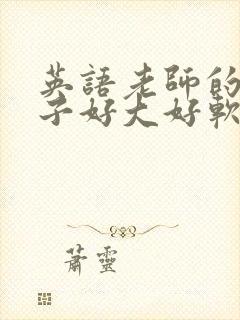 英語老師的
子好大好軟
蕭靈